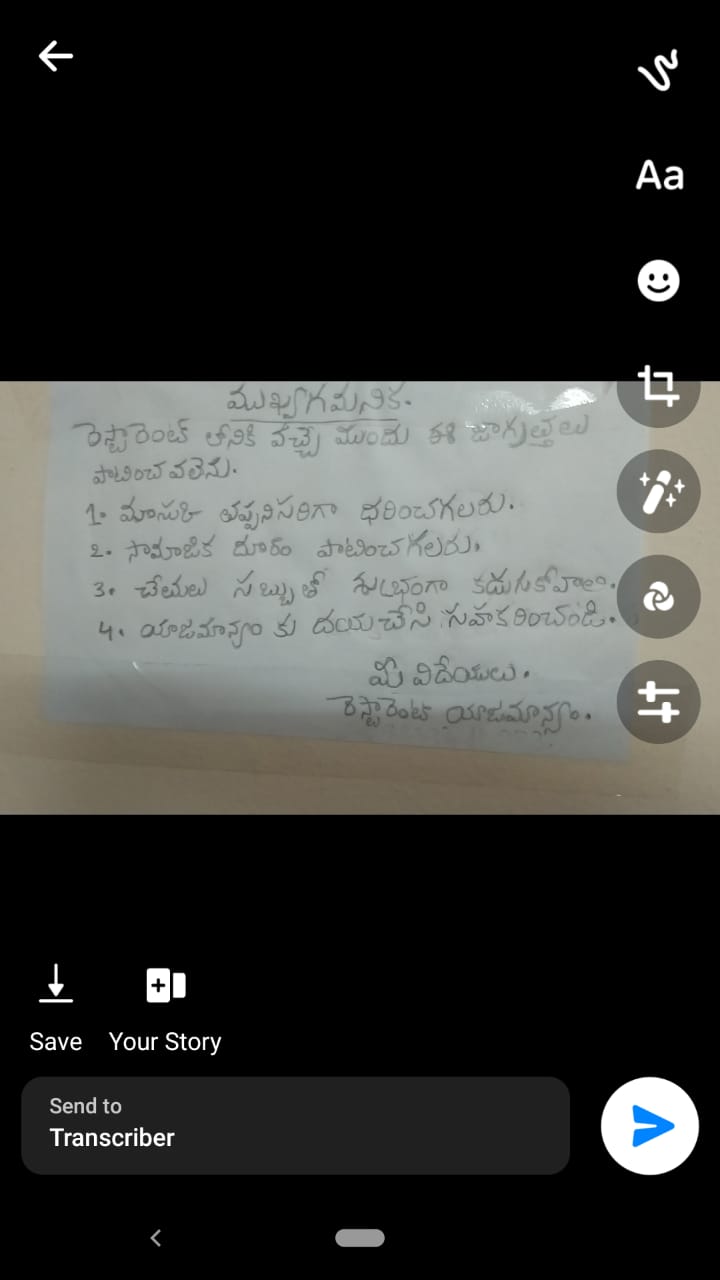 Aa
ముఖ్యగమనిక.
రెస్టారెంట్ లోనికి వచ్చే ముందు ఈ జాగ్రత్తలు
పాటించవలెను.
1. మాస్కు తప్పనిసరిగా ధరించగలరు.
2. సామాజిక దూరం పాటించగలరు.
3. చేతులు సబ్బుతో శుభ్రంగా కడుగుకోవాలి.
4. యాజమాన్యం కు దయచేసి సహకరించండి.
మీ విదేయులు.
రెస్టారెంట్ యాజమాన్యం.
Save Your Story
Send to
Transcriber